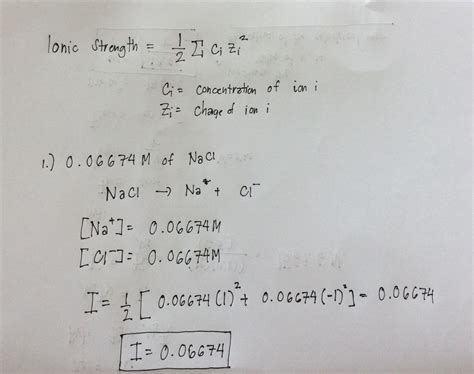 Ionic Strength = 1/2 Σ Ci Zi²
Ci = concentration of ion i
Zi = charge of ion i
1.) 0.06674 M of NaCl
NaCl → Na⁺ + Cl⁻
[Na⁺] = 0.06674 M
[Cl⁻] = 0.06674 M
I = 1/2 [ 0.06674 (1)² + 0.06674 (-1)² ] = 0.06674
I = 0.06674